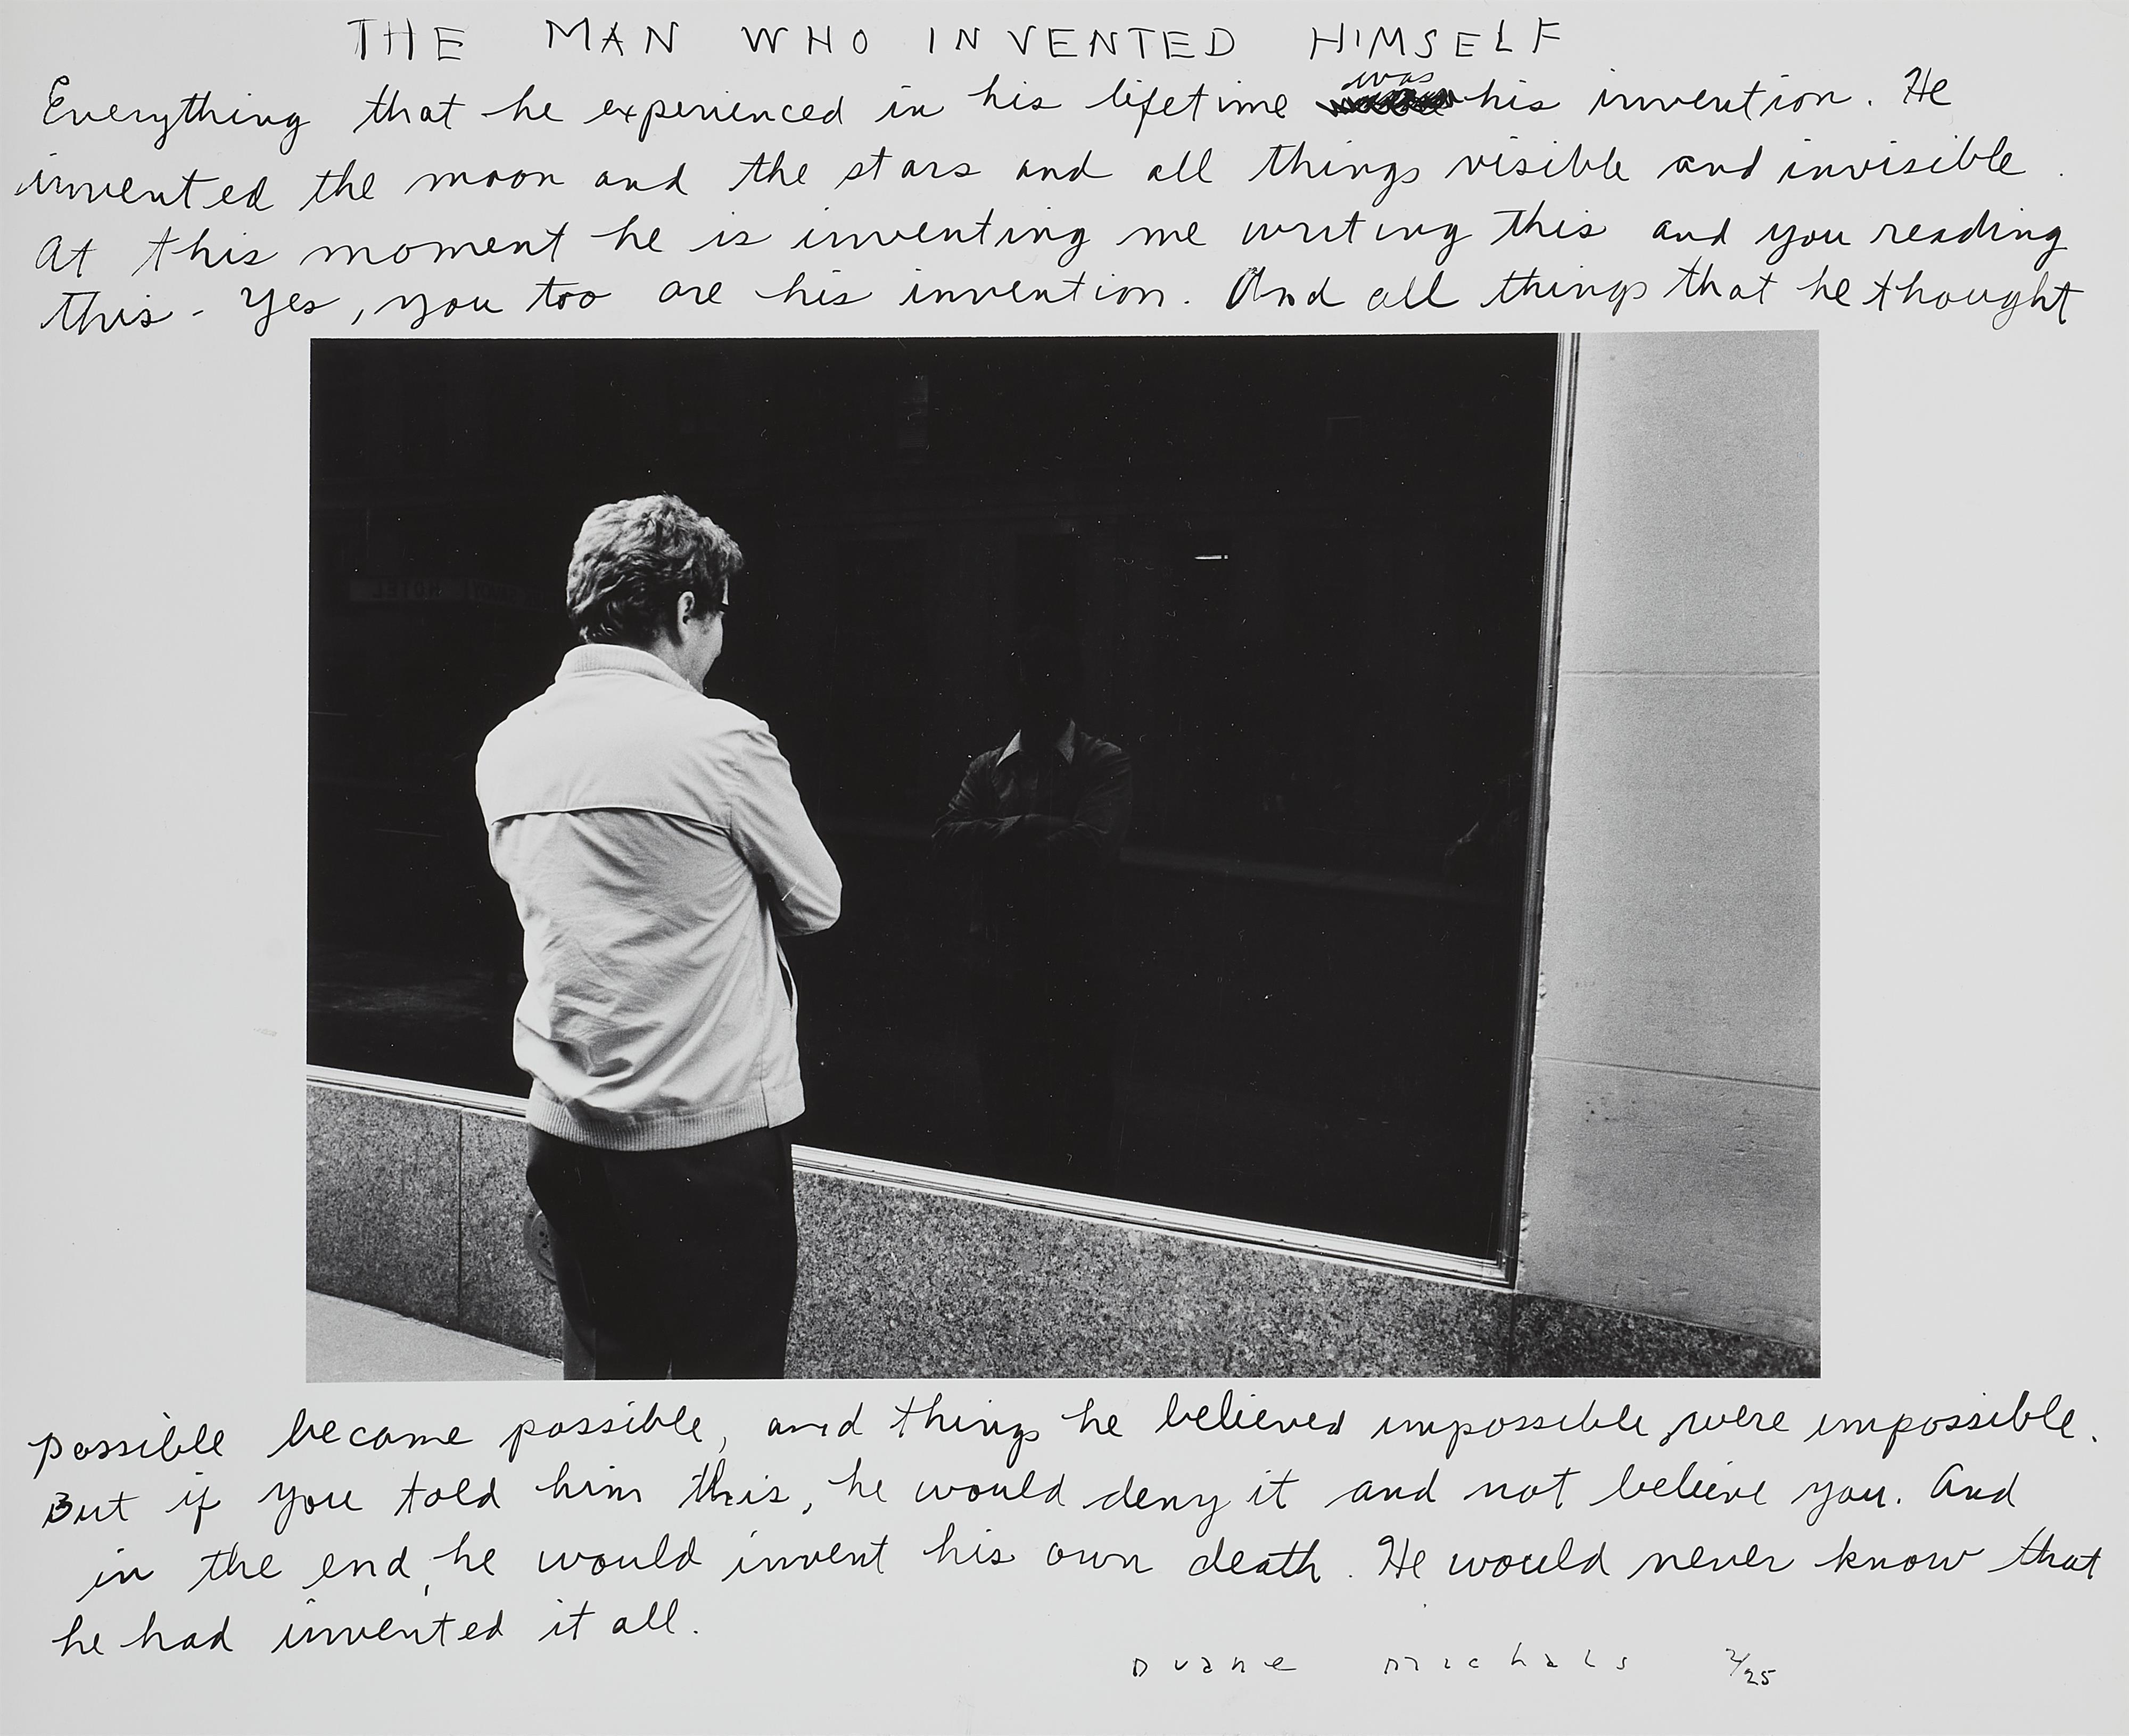 THE MAN WHO INVENTED HIMSELF
was
Everything that he experienced in his lifetime his invention. He
invented the moon and the stars and all things visible and invisible.
At this moment he is inventing me writing this and you reading
this - Yes, you too are his invention. And all things that he thought
HOTEL
possible became possible, and things he believed impossible, were impossible.
But if you told him this, he would deny it and not believe you. And
in the end, he would invent his own death. He would never know that
he had invented it all.
Duane Michals 2/25